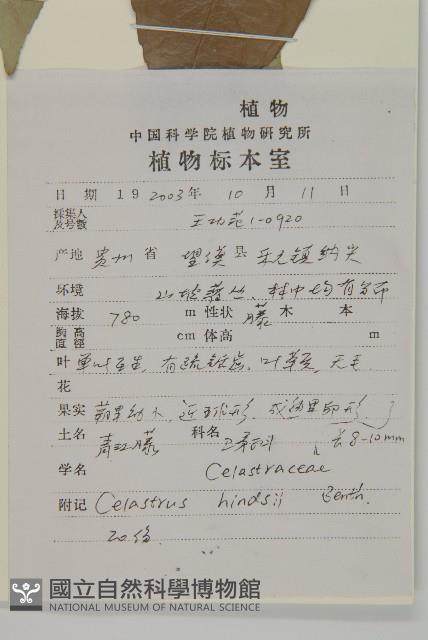 植物
中国科学院植物研究所
植物标本室
日 期 19 2003年 10 月 11 日
採集人
及号數 王功苑1-0920
产地 贵州 省 望谟 县 镇
环境 山坡灌丛、林中均有分布
海拔 780 m 性状 藤 木 本
胸高
直徑 cm 体高 m
叶 单叶互生,有疏锯齿,叶革质,无毛
花
果实 蒴果 近球形,
土名 青江藤 科名 卫矛科 长8-10mm
学名 Celastraceae
附记 Celastrus hindsii Benth.
20份
國立自然科學博物館
NATIONAL MUSEUM OF NATURAL SCIENCE